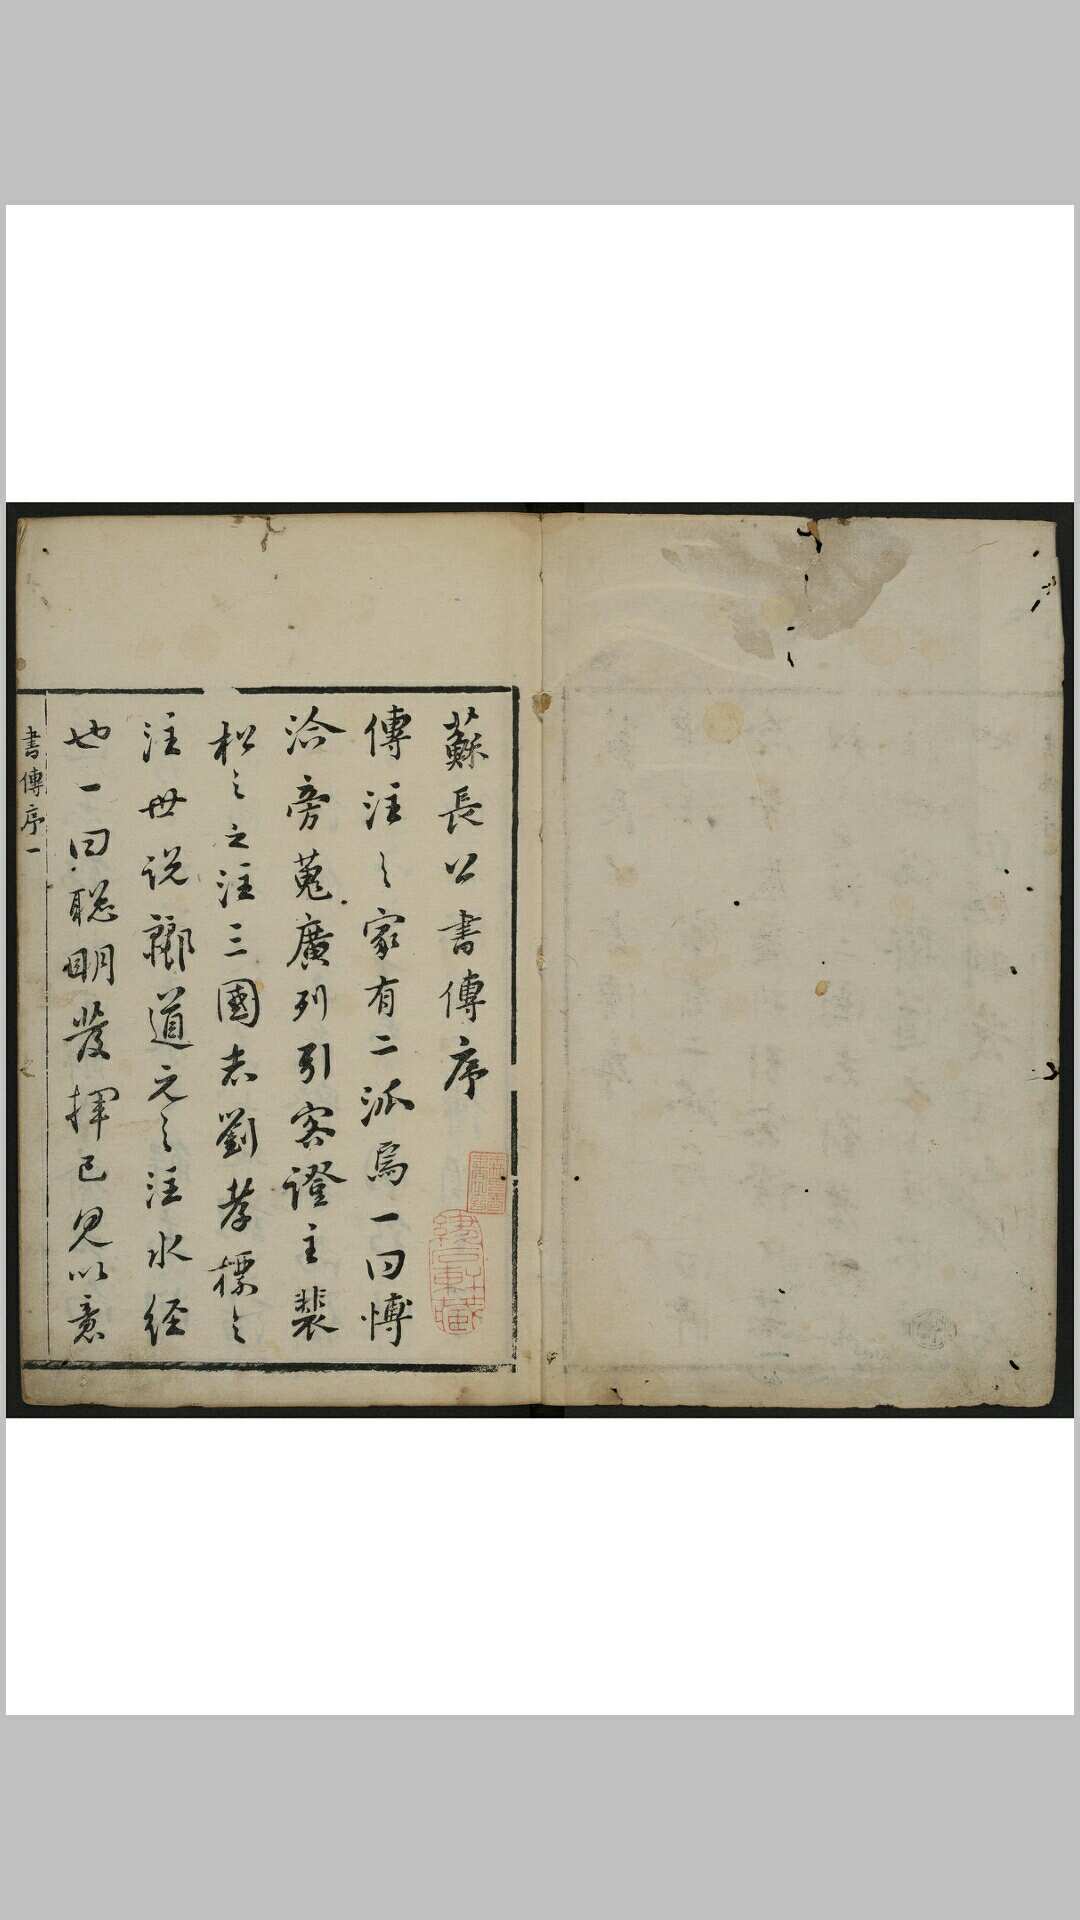 蘇長公書傳序
傳注之家有二派焉一曰博
洽旁蒐廣列引客證主裴
松之之注三國志劉孝標之
注世說酈道元之注水經
也一曰聰明發揮己見以意
書傳序一